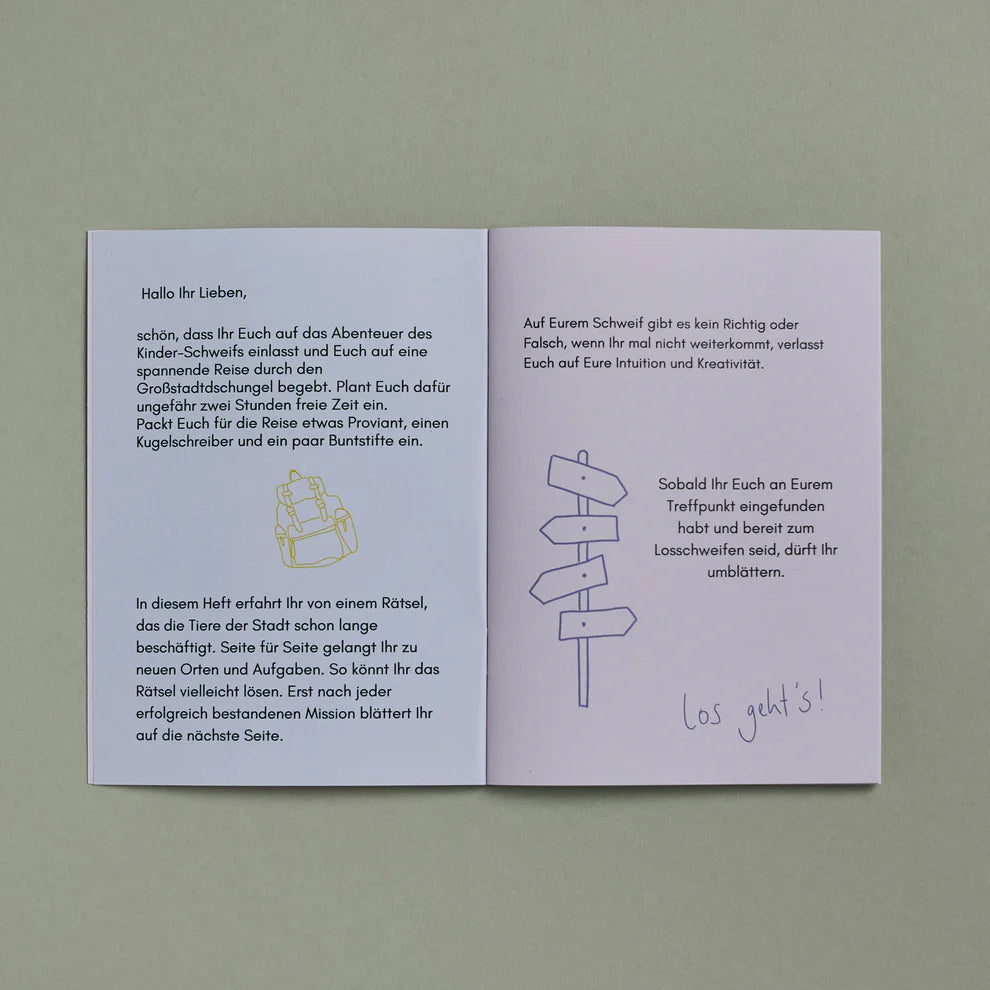 Hallo Ihr Lieben,
schön, dass Ihr Euch auf das Abenteuer des
Kinder-Schweifs einlasst und Euch auf eine
spannende Reise durch den
Großstadtdschungel begebt. Plant Euch dafür
ungefähr zwei Stunden freie Zeit ein.
Packt Euch für die Reise etwas Proviant, einen
Kugelschreiber und ein paar Buntstifte ein.
In diesem Heft erfahrt Ihr von einem Rätsel,
das die Tiere der Stadt schon lange
beschäftigt. Seite für Seite gelangt Ihr zu
neuen Orten und Aufgaben. So könnt Ihr das
Rätsel vielleicht lösen. Erst nach jeder
erfolgreich bestandenen Mission blättert Ihr
auf die nächste Seite.
Auf Eurem Schweif gibt es kein Richtig oder
Falsch, wenn Ihr mal nicht weiterkommt, verlasst
Euch auf Eure Intuition und Kreativität.
Sobald Ihr Euch an Eurem
Treffpunkt eingefunden
habt und bereit zum
Losschweifen seid, dürft Ihr
umblättern.
Los geht's!